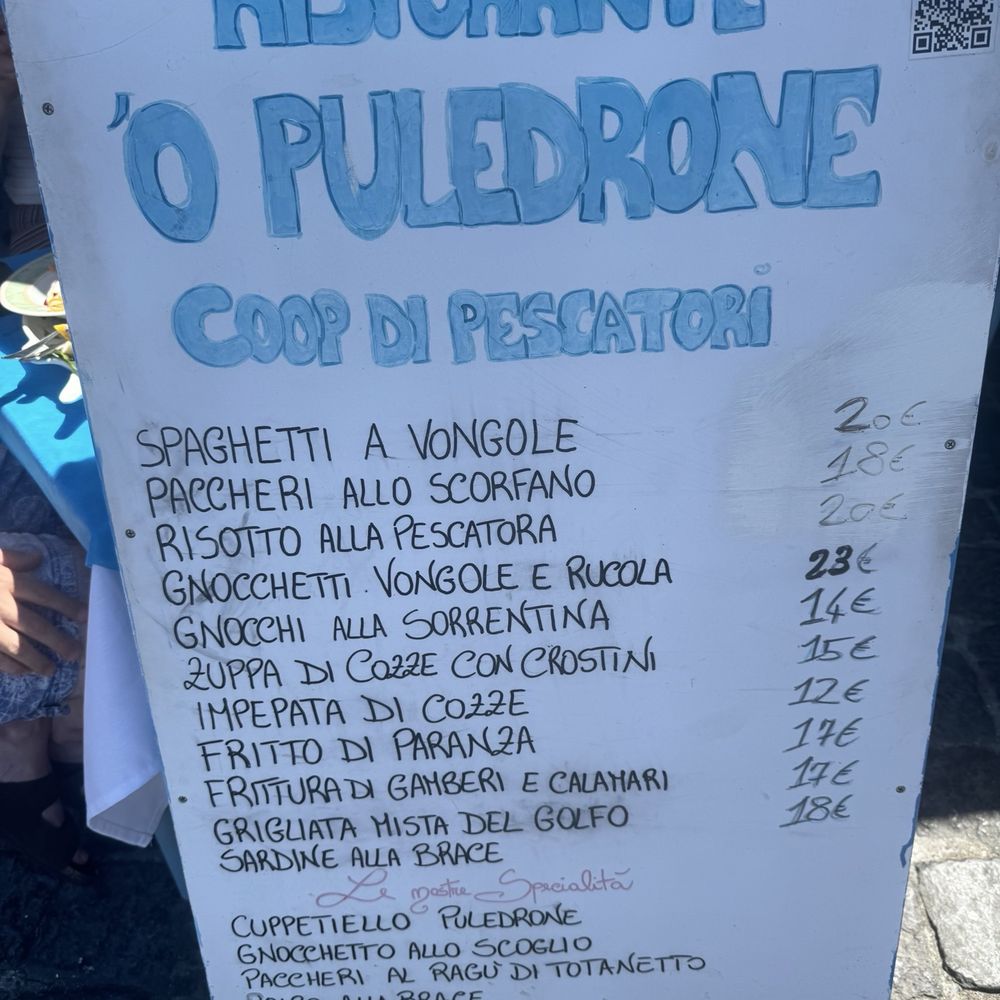 RISTORANTE
'O PULEDRONE
COOP DI PESCATORI
SPAGHETTI A VONGOLE 20€
PACCHERI ALLO SCORFANO 18€
RISOTTO ALLA PESCATORA 20€
GNOCCHETTI VONGOLE E RUCOLA 23€
GNOCCHI ALLA SORRENTINA 14€
ZUPPA DI COZZE CON CROSTINI 15€
IMPEPATA DI COZZE 12€
FRITTO DI PARANZA 17€
FRITTURA DI GAMBERI E CALAMARI 17€
GRIGLIATA MISTA DEL GOLFO 18€
SARDINE ALLA BRACE
Le nostre Specialità
CUPPETIELLO PULEDRONE
GNOCCHETTO ALLO SCOGLIO
PACCHERI AL RAGÙ DI TOTANETTO
ALLA BRACE